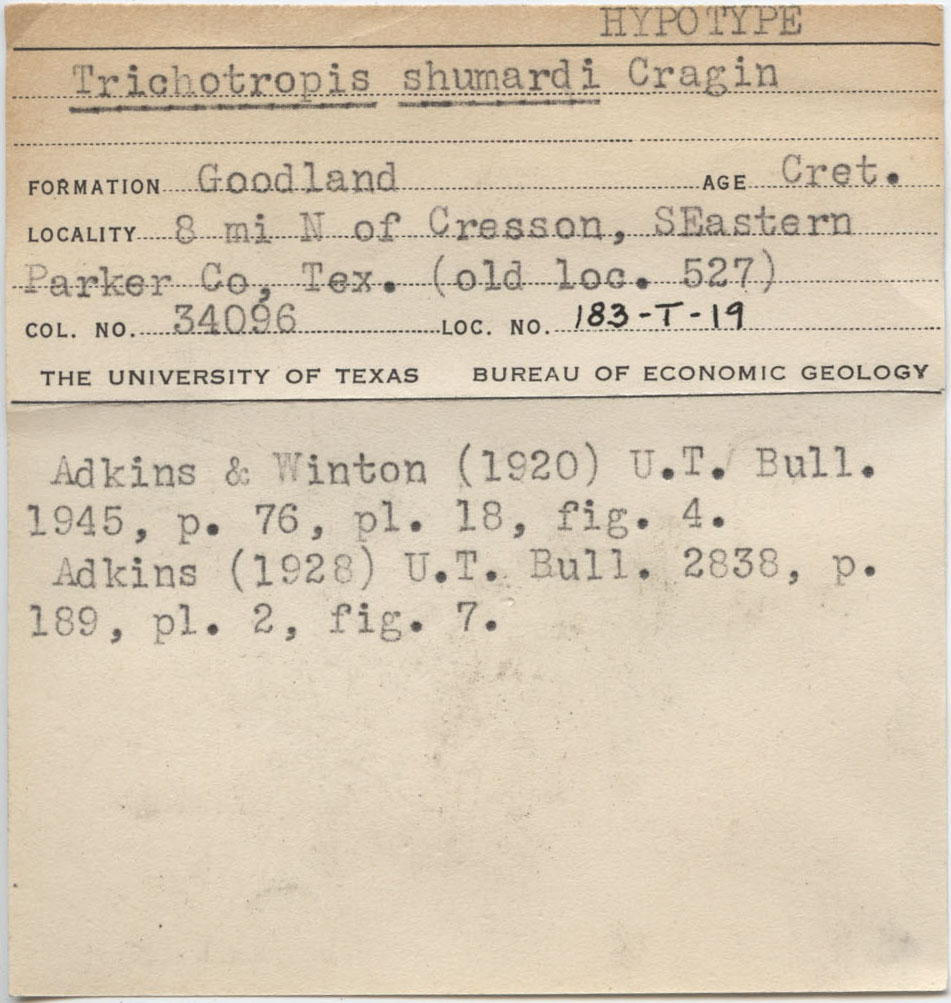 HYPOTYPE
Trichotropis shumardi Cragin
FORMATION Goodland AGE Cret.
LOCALITY 8 mi N of Cresson, SEastern
Parker Co, Tex. (old loc. 527)
COL. NO. 34096 LOC. NO. 183-T-19
THE UNIVERSITY OF TEXAS BUREAU OF ECONOMIC GEOLOGY
Adkins & Winton (1920) U.T. Bull.
1945, p. 76, pl. 18, fig. 4.
Adkins (1928) U.T. Bull. 2838, p.
189, pl. 2, fig. 7.